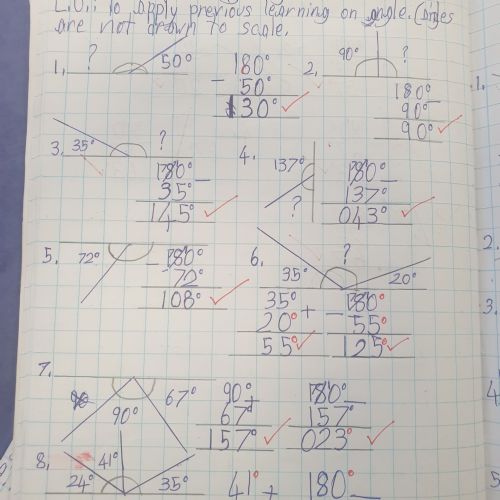 L.O.: To apply previous learning on angle. (angles
are not drawn to scale.
1. ? 50° 180° - 50° 130° 2. 90° ? 180° - 90° 90°
3. 35° ? 180° - 35° 145° 4. 137° ? 180° - 137° 043°
5. 72° - 180° 72° 108° 6. 35° ? 20° 35° + 20° 55° - 180° 55° 125°
7. 90° 67° 90° + 67° 157° 180° - 157° 023°
8. 24° 41° 35° 41° + 180° -
1.
2.
3.
4
5